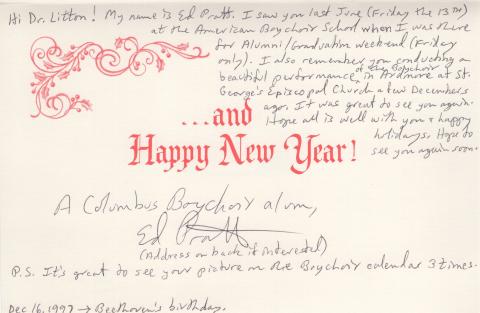 Hi Dr. Litton! My name is Ed Pratt. I saw you last June (Friday the 13TH)
at the American Boychoir School when I was there
for Alumni/Graduation weekend (Friday
only). I also remember you conducting a
beautiful performance of the Boychoir in Ardmore at St.
George's Episcopal Church a few Decembers
ago. It was great to see you again.
Hope all is well with you & happy
holidays. Hope to
see you again soon.
...and
Happy New Year!
A Columbus Boychoir alum,
Ed Pratt
(Address on back if interested)
P.S. It's great to see your picture on the Boychoir calendar 3 times.
Dec 16, 1997 → Beethoven's birthday.